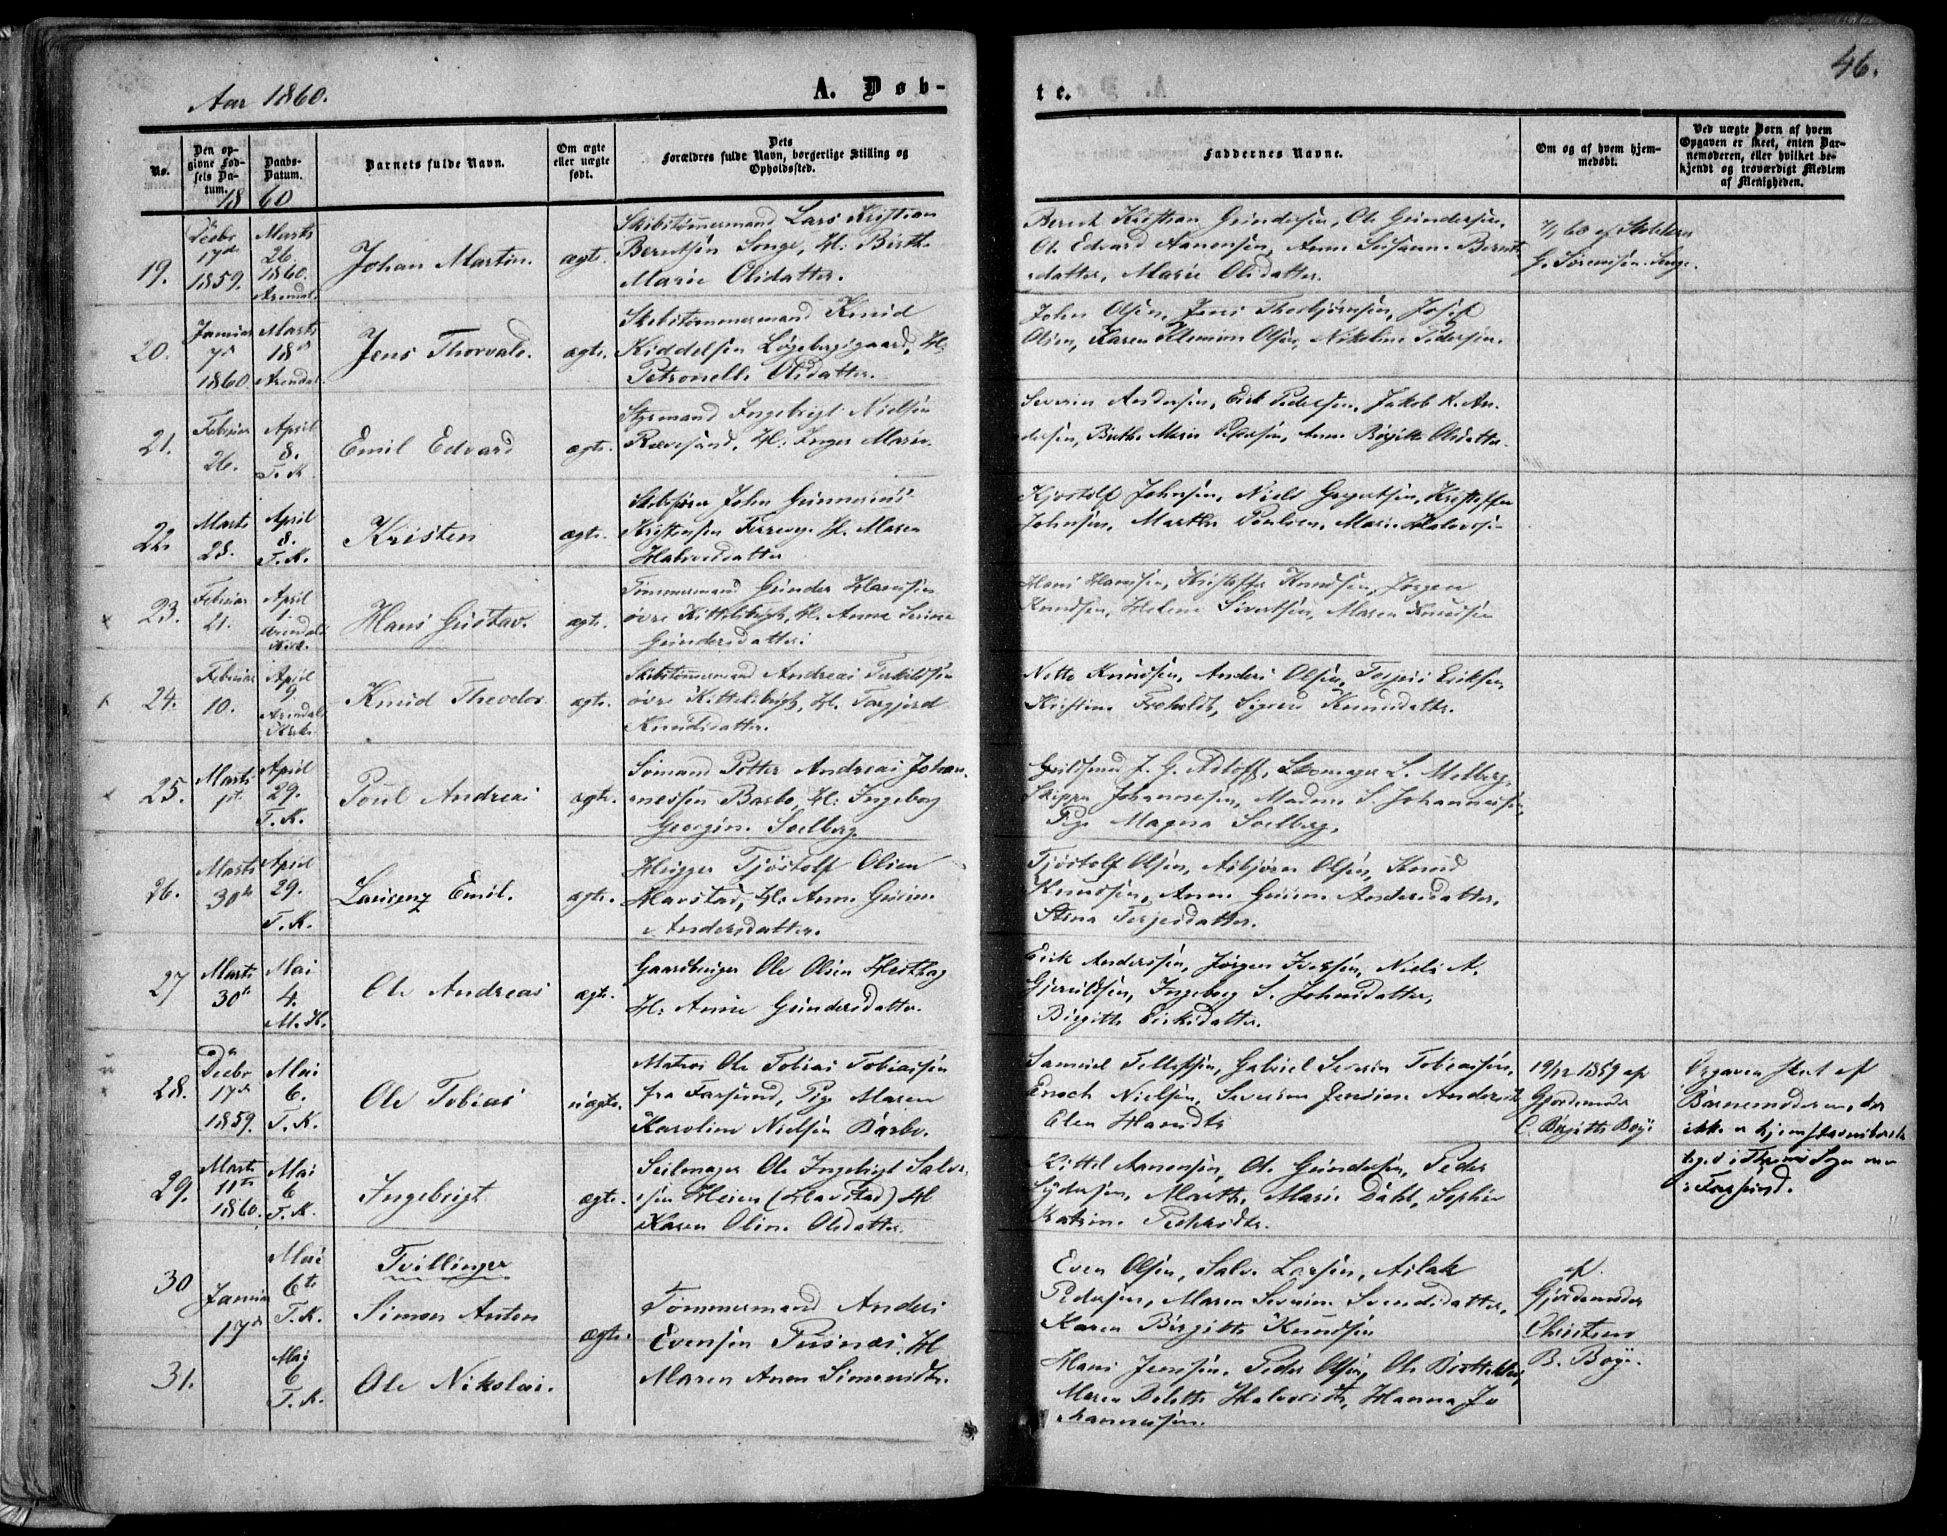 46.
Aar 1860.
A. Døb-
te.
No.
Den op-
givne Fød-
sels Da-
tum.
Daabs-
Datum.
18 60
Barnets fulde Navn.
Om ægte
eller uægte
født.
Dets
Forældres fulde Navn, borgerlige Stilling og
Opholdssted.
Faddernes Navne.
Om og af hvem hjem-
medøbt.
Ved uægte Børn af hvem
Opgaven er skeet, enten Bar-
nemoderen, eller hvilket be-
kjendt og troværdigt Medlem
af Menigheden.
19.
Decbr
17de
1859.
Marts
26.
1860.
Arendal.
Johan Martin.
ægte.
Skibstømmermand Lars Kristian
Berntsen Songe, H: Birthe
Marie Olsdatter.
Bernt Kristian Gundersen, Ole Gundersen,
Ole Edvard Aanonsen, Anne Susanne Bernts
datter, Marie Olsdatter.
60 af
G. Sørensen Songe.
20.
Januar
7de
1860
Marts
18de
Arendal.
Jens Thorvald.
ægte.
Skibstømmermand Knud
Kiddelsen Løgebergsgaard, H:
Petronelle Olsdatter.
John Olsen, Jens Thorbjørnsen, Josef
Olsen, Karen Olsen, Nikoline Pedersen.
21.
Februar
26.
April
8.
T. K.
Emil Edvard
ægte.
Styrmand Ingebrigt Nielsen
Rævesand, H. Inger Marie.
Severin Andersen, Erik Pedersen, Jakob K. An-
dersen, Birthe Marie Pedersen, Anne Birgitte Olsdatter.
22.
Marts
28.
April
8.
T. K.
Kristen
ægte.
John
Kristensen H. Maren
Halvorsdatter
Kjøstolf Johnsen, Niels Gregertsen, Kristoffer
Johnsen, Marthe Poulsen, Marie Halvorsen
23.
Februar
21.
April
1.
Arendals
Kirk.
Hans Gustav.
ægte.
Tømmermand Gunder Hansen
øvre Kittelsbugt, H. Anne Serine
Gundersdatter.
Hans Hansen, Kristoffer Knudsen, Jørgen
Knudsen, Helene Sivertsen, Maren Knudsen
24.
Februar
10.
April
9.
Arendals
Kirk.
Knud Theodor.
ægte.
Skibstømmermand Andreas Terkildsen
øvre Kittelsbugt, H. Torgjerd
Knudsdatter.
Knudsen, Anders Olsen, Eriksen,
Kristine Froholdt, Sigrid Knudsdatter.
25.
Marts
1ste
April
29.
T. K.
Poul Andreas
ægte.
Sømand Petter Andreas Johan-
nessen Barbo, H: Ingeborg
Georgine Soelberg
J. G. Adloff, Skomager L. Melberg,
Skipper Johannesen, Madam S. Johannesen,
Pige Magna Soelberg.
26.
Marts
30te
April
29.
T. K.
Laurenz Emil.
ægte.
Hugger Tjøstolf Olsen
Havstad, H. Anne Gurine
Andersdatter.
Tjøstolf Olsen, Asbjørn Olsen, Knud
Knudsen, Anne Gurine Andersdatter,
Stina Terjesdatter.
27
Marts
30te
Mai
4.
M. K.
Ole Andreas
ægte.
Gaardbruger Ole Olsen Hesthag
H: Anne Gundersdatter.
Erik Andersen, Jørgen Iversen, Niels A.
Gjeruldsen, Ingeborg S. Johnsdatter,
Birgitte Eriksdatter.
28.
Decbr
17de
1859.
Mai
6.
T. K.
Ole Tobias
uægte.
Matros Ole Tobias Tobiassen
fra Farsund, Pige Maren
Karoline Nielsen Barbo.
Samuel Tellefsen, Gabriel Severin Tobiassen,
Enoch Nielsen, Severine Andersdt
Olea Hamdt
19/12 1859 af
Gjordemoder
C. Birgitte Boye
Opgaven skeet af
Barnemoderen, der
ikke er hjemstavnsberet-
tiget i Sogn men
i Farsund.
29.
Marts
11te
1860.
Mai
6
T. K.
Ingebrigt
ægte.
Seilmager Ole Ingebrigt Salve-
sen Heien (Havstad) H
Karen Oline Olsdatter.
Kittel Aanonsen, Ole Gundersen, Peder
Marthe Marie Dahl, Sophie
Katrine
30
Januar
17de
Mai
6te
T. K.
Tvillinger
Simon Anton
ægte.
Tømmermand Anders
Evensen Pusnæs, H
Maren Anne Simonsdtr.
Even Olsen, Salve Larsen, Aslak
Pedersen, Maren Severine Svendsdatter,
Karen Birgitte Knudsen
af
Gjordemoder
B. Boye.
31.
Mai
6
T. K.
Ole Nikolai.
Hans Jensen, Peder Olsen, Ole
Maren Halvorsdt, Hanna Jo
hannessen.